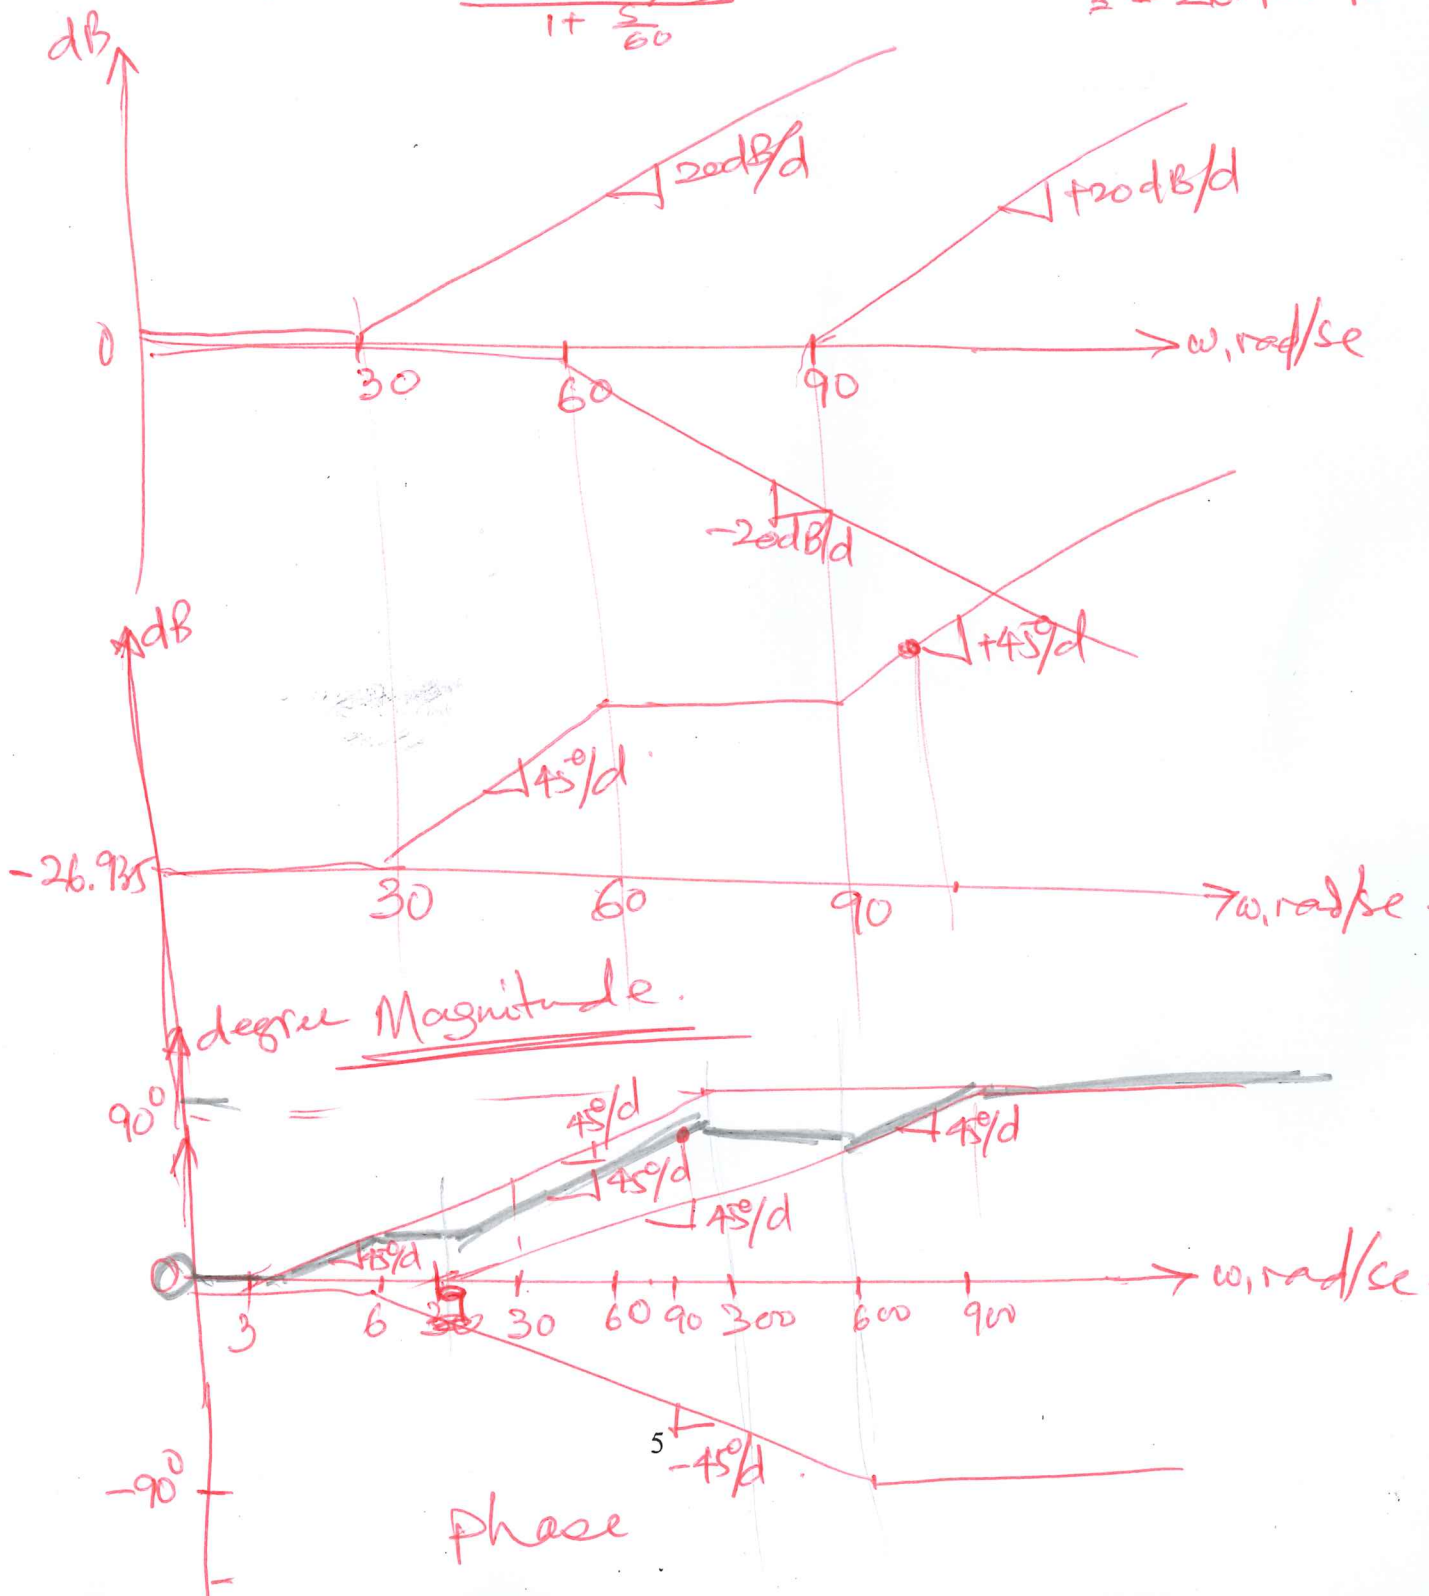 1 + S/60
dB
20dB/d
+20dB/d
0
30
60
90
ω, rad/se
-20dB/d
dB
+45°/d
45°/d
-26.935
30
60
90
ω, rad/se
degree Magnitude.
90°
45°/d
45°/d
45°/d
45°/d
45°/d
0
3
6
30
60
90
300
600
900
ω, rad/se
5
-45°/d
-90°
phase